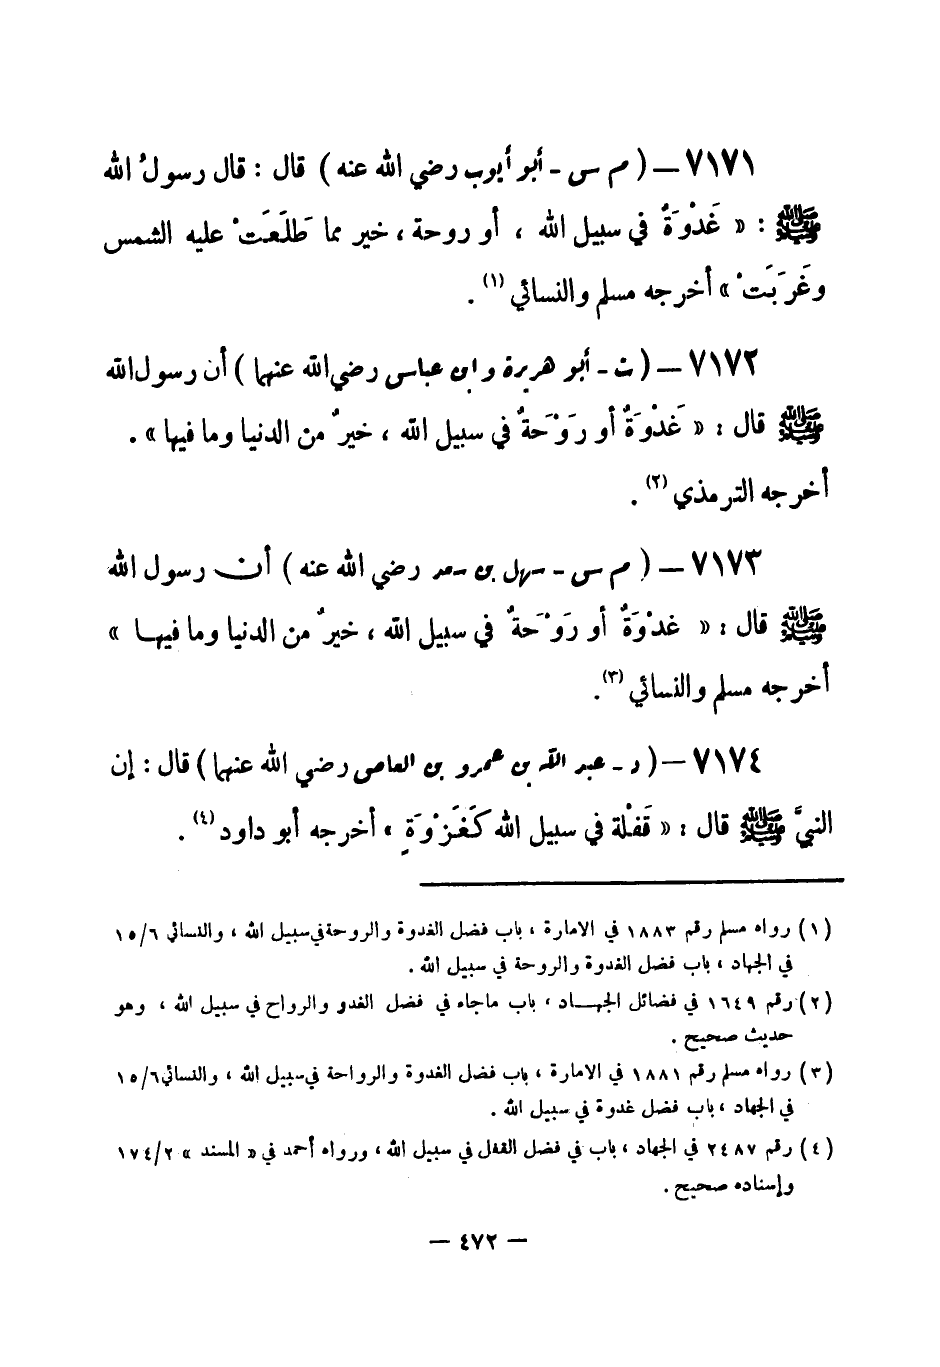 ٧١٧١ – ( م س - أبو أيوب رضي الله عنه ) قال : قال رسولُ الله
ﷺ : « غَدْوَةٌ في سبيل الله ، أو روحة ، خير مما طَلَعَتْ عليه الشمس
وغَرَبَتْ » أخرجه مسلم والنسائي (١) .
٧١٧٢ – ( ت - أبو هريرة وابن عباس رضي الله عنهما ) أن رسول الله
ﷺ قال : « غَدْوَةٌ أو رَوْحَةٌ في سبيل الله ، خيرٌ من الدنيا وما فيها » .
أخرجه الترمذي (٢) .
٧١٧٣ – ( م س - سهل بن سعد رضي الله عنه ) أن رسول الله
ﷺ قال : « غدْوَةٌ أو رَوْحَةٌ في سبيل الله ، خيرٌ من الدنيا وما فيهـا »
أخرجه مسلم والنسائي (٣) .
٧١٧٤ – ( د - عبد الله بن عمرو بن العاص رضي الله عنهما ) قال : إن
النبيَّ ﷺ قال : « قَفْلة في سبيل الله كَغَزْوَةٍ » أخرجه أبو داود (٤) .
(١) رواه مسلم رقم ١٨٨٣ في الامارة ، باب فضل الغدوة والروحة في سبيل الله ، والنسائي ١٥/٦
في الجهاد ، باب فضل الغدوة والروحة في سبيل الله .
(٢) رقم ١٦٤٩ في فضائل الجهـاد ، باب ماجاء في فضل الغدو والرواح في سبيل الله ، وهو
حديث صحيح .
(٣) رواه مسلم رقم ١٨٨١ في الامارة ، باب فضل الغدوة والرواحة في سبيل الله ، والنسائي ١٥/٦
في الجهاد ، باب فضل غدوة في سبيل الله .
(٤) رقم ٢٤٨٧ في الجهاد ، باب في فضل القفل في سبيل الله ، ورواه أحمد في « المسند » ١٧٤/٢
وإسناده صحيح .
– ٤٧٢ –